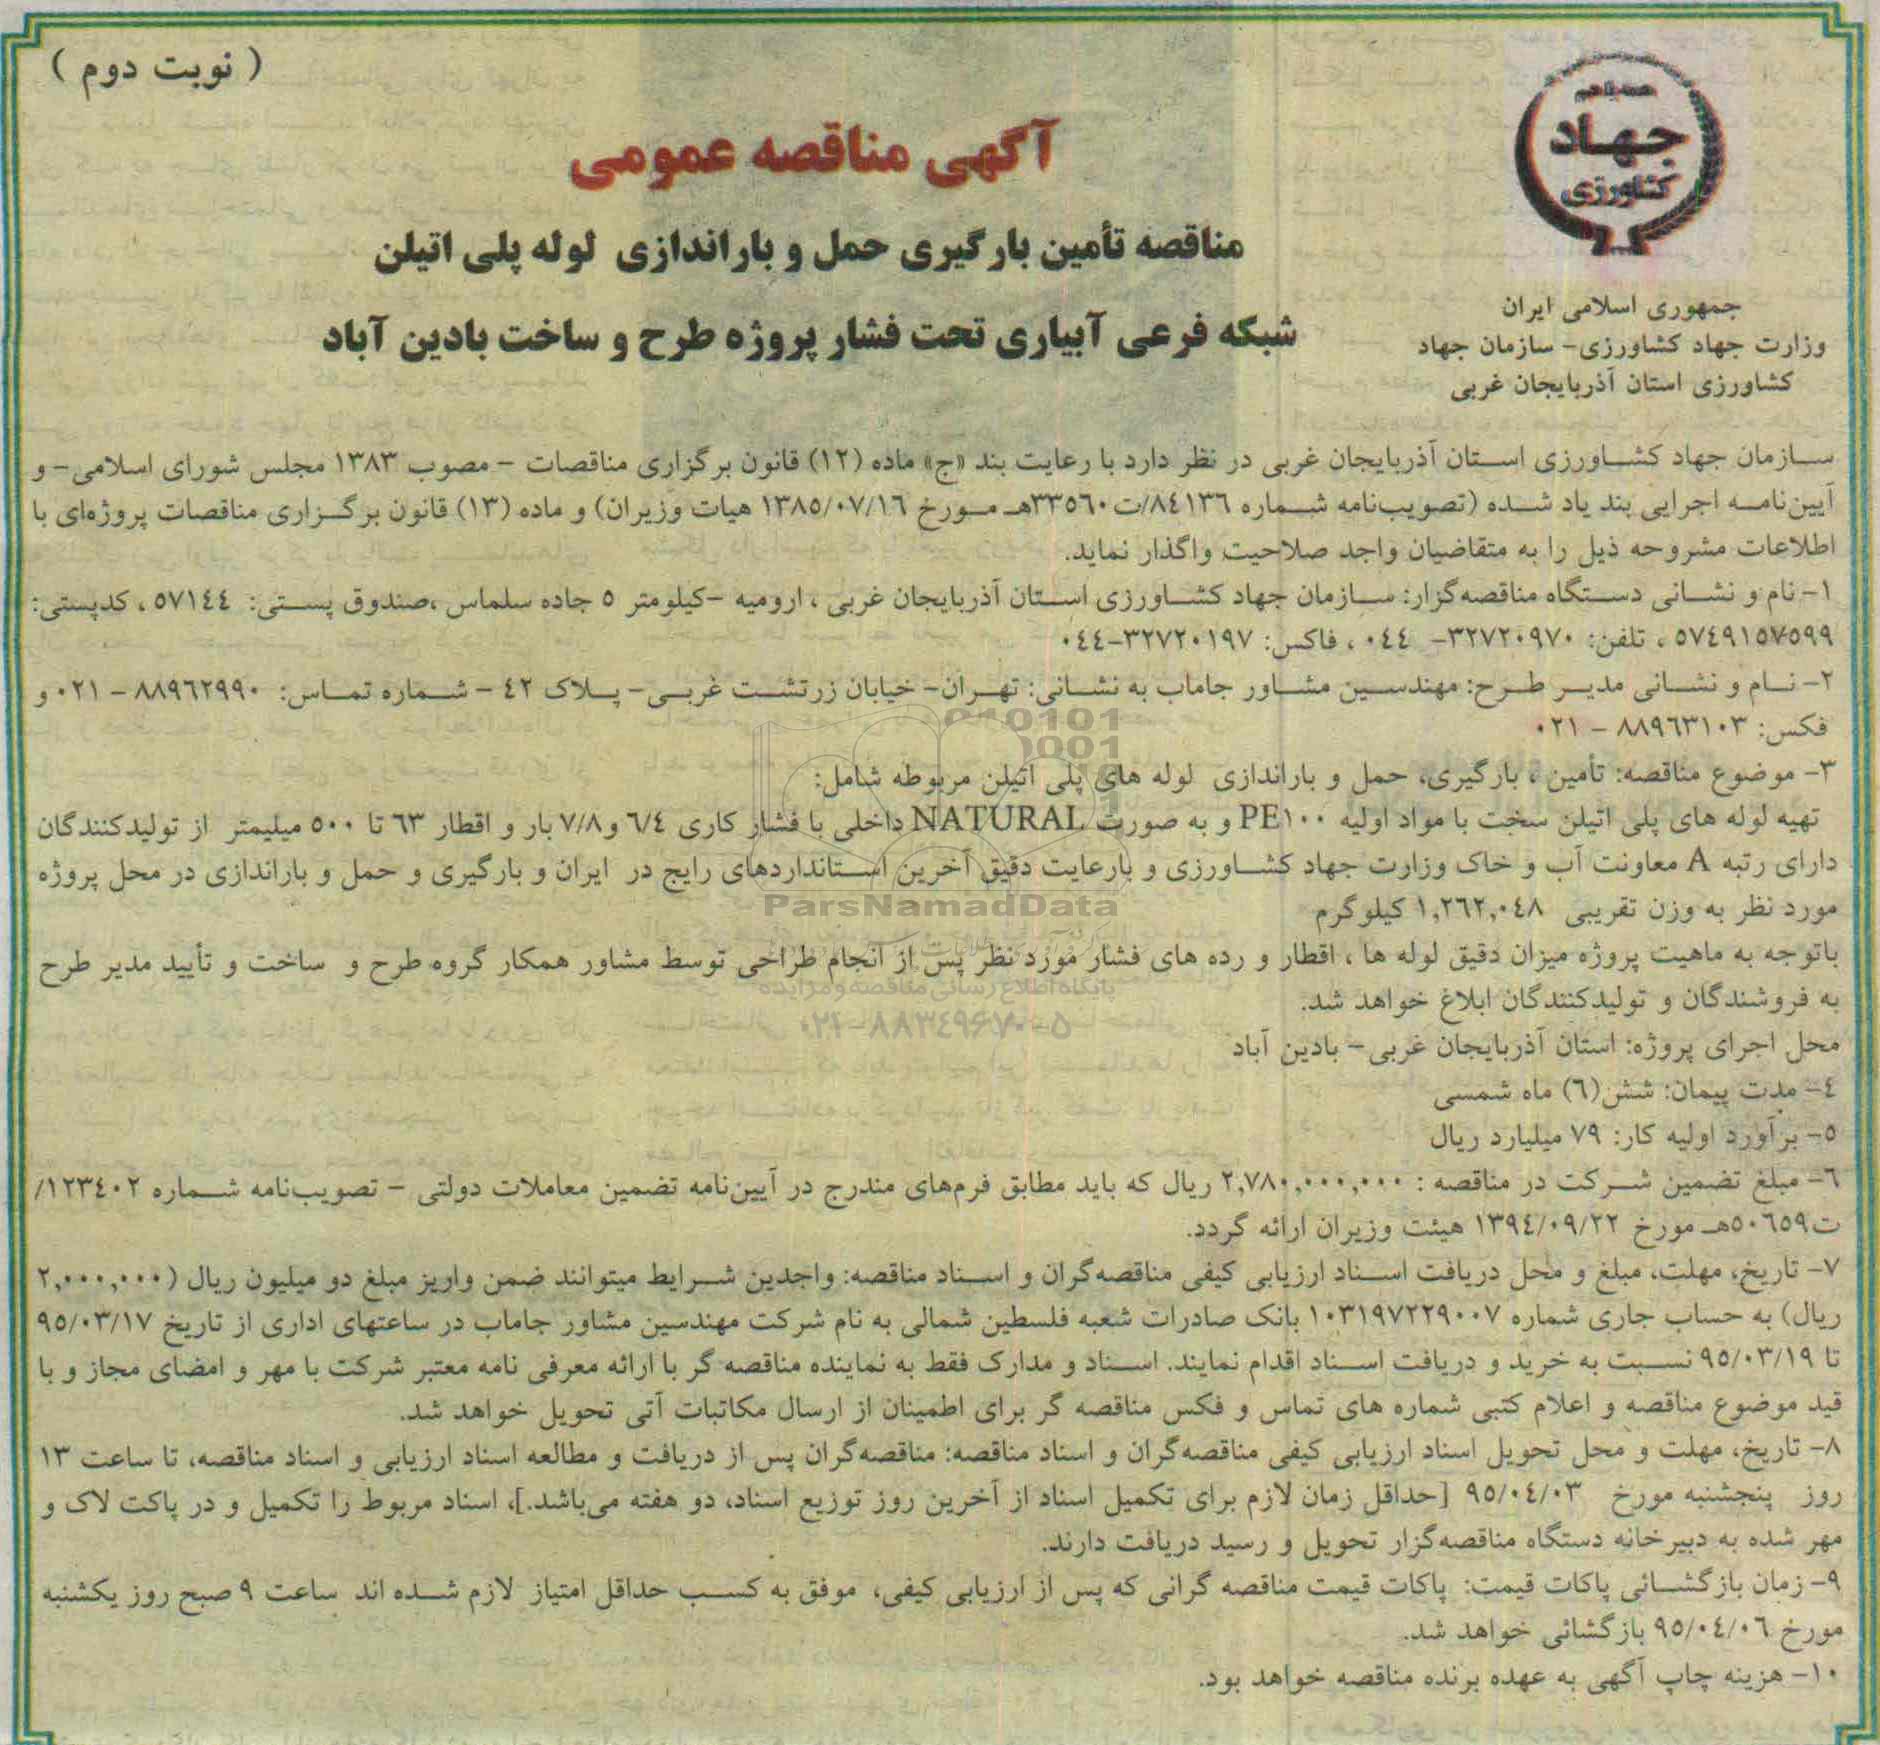 ( نوبت دوم )
جهاد
کشاورزی
آگهی مناقصه عمومی
مناقصه تأمین بارگیری حمل و باراندازی لوله پلی اتیلن
شبکه فرعی آبیاری تحت فشار پروژه طرح و ساخت بادین آباد
جمهوری اسلامی ایران
وزارت جهاد کشاورزی- سازمان جهاد
کشاورزی استان آذربایجان غربی
سازمان جهاد کشاورزی استان آذربایجان غربی در نظر دارد با رعایت بند «ج» ماده (۱۲) قانون برگزاری مناقصات - مصوب ۱۳۸۳ مجلس شورای اسلامی- و
آیین‌نامه اجرایی بند یاد شده (تصویب‌نامه شماره ۸٤۱۳٦/ت۳۳۵٦۰هـ مورخ ۱۳۸۵/۰۷/۱٦ هیات وزیران) و ماده (۱۳) قانون برگزاری مناقصات پروژه‌ای با
اطلاعات مشروحه ذیل را به متقاضیان واجد صلاحیت واگذار نماید.
۱- نام و نشانی دستگاه مناقصه‌گزار: سازمان جهاد کشاورزی استان آذربایجان غربی ، ارومیه -کیلومتر ۵ جاده سلماس ،صندوق پستی: ۵۷۱٤٤ ، کدپستی:
۵۷٤۹۱۵۷۵۹۹ ، تلفن: ۳۲۷۲۰۹۷۰- ۰٤٤ ، فاکس: ۳۲۷۲۰۱۹۷-۰٤٤
۲- نام و نشانی مدیر طرح: مهندسین مشاور جاماب به نشانی: تهران- خیابان زرتشت غربی- پلاک ٤۲ - شماره تماس: ۸۸۹٦۲۹۹۰ - ۰۲۱ و
فکس: ۸۸۹٦۳۱۰۳ - ۰۲۱
۳- موضوع مناقصه: تأمین ، بارگیری، حمل و باراندازی لوله های پلی اتیلن مربوطه شامل:
تهیه لوله های پلی اتیلن سخت با مواد اولیه PE۱۰۰ و به صورت NATURAL داخلی با فشار کاری ٦/٤ و۷/۸ بار و اقطار ٦۳ تا ۵۰۰ میلیمتر از تولیدکنندگان
دارای رتبه A معاونت آب و خاک وزارت جهاد کشاورزی و بارعایت دقیق آخرین استانداردهای رایج در ایران و بارگیری و حمل و باراندازی در محل پروژه
مورد نظر به وزن تقریبی ۱,۲٦۲,۰٤۸ کیلوگرم
باتوجه به ماهیت پروژه میزان دقیق لوله ها ، اقطار و رده های فشار مورد نظر پس از انجام طراحی توسط مشاور همکار گروه طرح و ساخت و تأیید مدیر طرح
به فروشندگان و تولیدکنندگان ابلاغ خواهد شد.
محل اجرای پروژه: استان آذربایجان غربی- بادین آباد
٤- مدت پیمان: شش(٦) ماه شمسی
۵- برآورد اولیه کار: ۷۹ میلیارد ریال
٦- مبلغ تضمین شرکت در مناقصه : ۲,۷۸۰,۰۰۰,۰۰۰ ریال که باید مطابق فرم‌های مندرج در آیین‌نامه تضمین معاملات دولتی - تصویب‌نامه شماره ۱۲۳٤۰۲/
ت۵۰٦۵۹هـ مورخ ۱۳۹٤/۰۹/۲۲ هیئت وزیران ارائه گردد.
۷- تاریخ، مهلت، مبلغ و محل دریافت اسناد ارزیابی کیفی مناقصه‌گران و اسناد مناقصه: واجدین شرایط میتوانند ضمن واریز مبلغ دو میلیون ریال (۲,۰۰۰,۰۰۰
ریال) به حساب جاری شماره ۱۰۳۱۹۷۲۲۹۰۰۷ بانک صادرات شعبه فلسطین شمالی به نام شرکت مهندسین مشاور جاماب در ساعتهای اداری از تاریخ ۹۵/۰۳/۱۷
تا ۹۵/۰۳/۱۹ نسبت به خرید و دریافت اسناد اقدام نمایند. اسناد و مدارک فقط به نماینده مناقصه گر با ارائه معرفی نامه معتبر شرکت با مهر و امضای مجاز و با
قید موضوع مناقصه و اعلام کتبی شماره های تماس و فکس مناقصه گر برای اطمینان از ارسال مکاتبات آتی تحویل خواهد شد.
۸- تاریخ، مهلت و محل تحویل اسناد ارزیابی کیفی مناقصه‌گران و اسناد مناقصه: مناقصه‌گران پس از دریافت و مطالعه اسناد ارزیابی و اسناد مناقصه، تا ساعت ۱۳
روز پنجشنبه مورخ ۹۵/۰٤/۰۳ [حداقل زمان لازم برای تکمیل اسناد از آخرین روز توزیع اسناد، دو هفته می‌باشد.]، اسناد مربوط را تکمیل و در پاکت لاک و
مهر شده به دبیرخانه دستگاه مناقصه‌گزار تحویل و رسید دریافت دارند.
۹- زمان بازگشائی پاکات قیمت: پاکات قیمت مناقصه گرانی که پس از ارزیابی کیفی، موفق به کسب حداقل امتیاز لازم شده اند ساعت ۹ صبح روز یکشنبه
مورخ ۹۵/۰٤/۰٦ بازگشائی خواهد شد.
۱۰- هزینه چاپ آگهی به عهده برنده مناقصه خواهد بود.
ParsNamadData
پایگاه اطلاع رسانی مناقصه و مزایده
۰۲۱-۸۸۳۴۹۶۷۰-۵